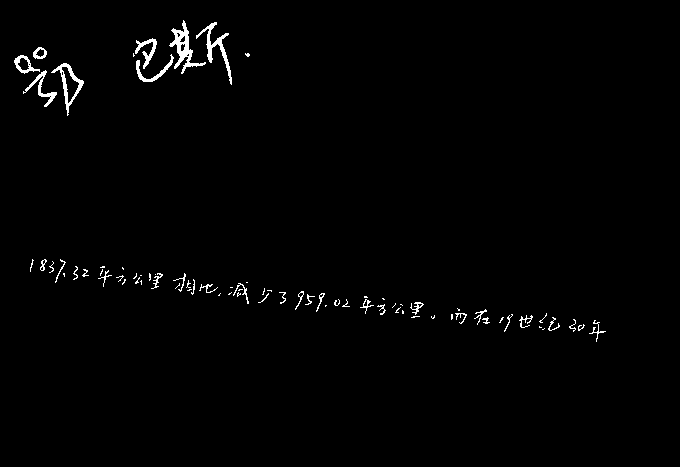 鄂 巴斯.
1837.32平方公里相比,减少了959.02平方公里。而在19世纪30年